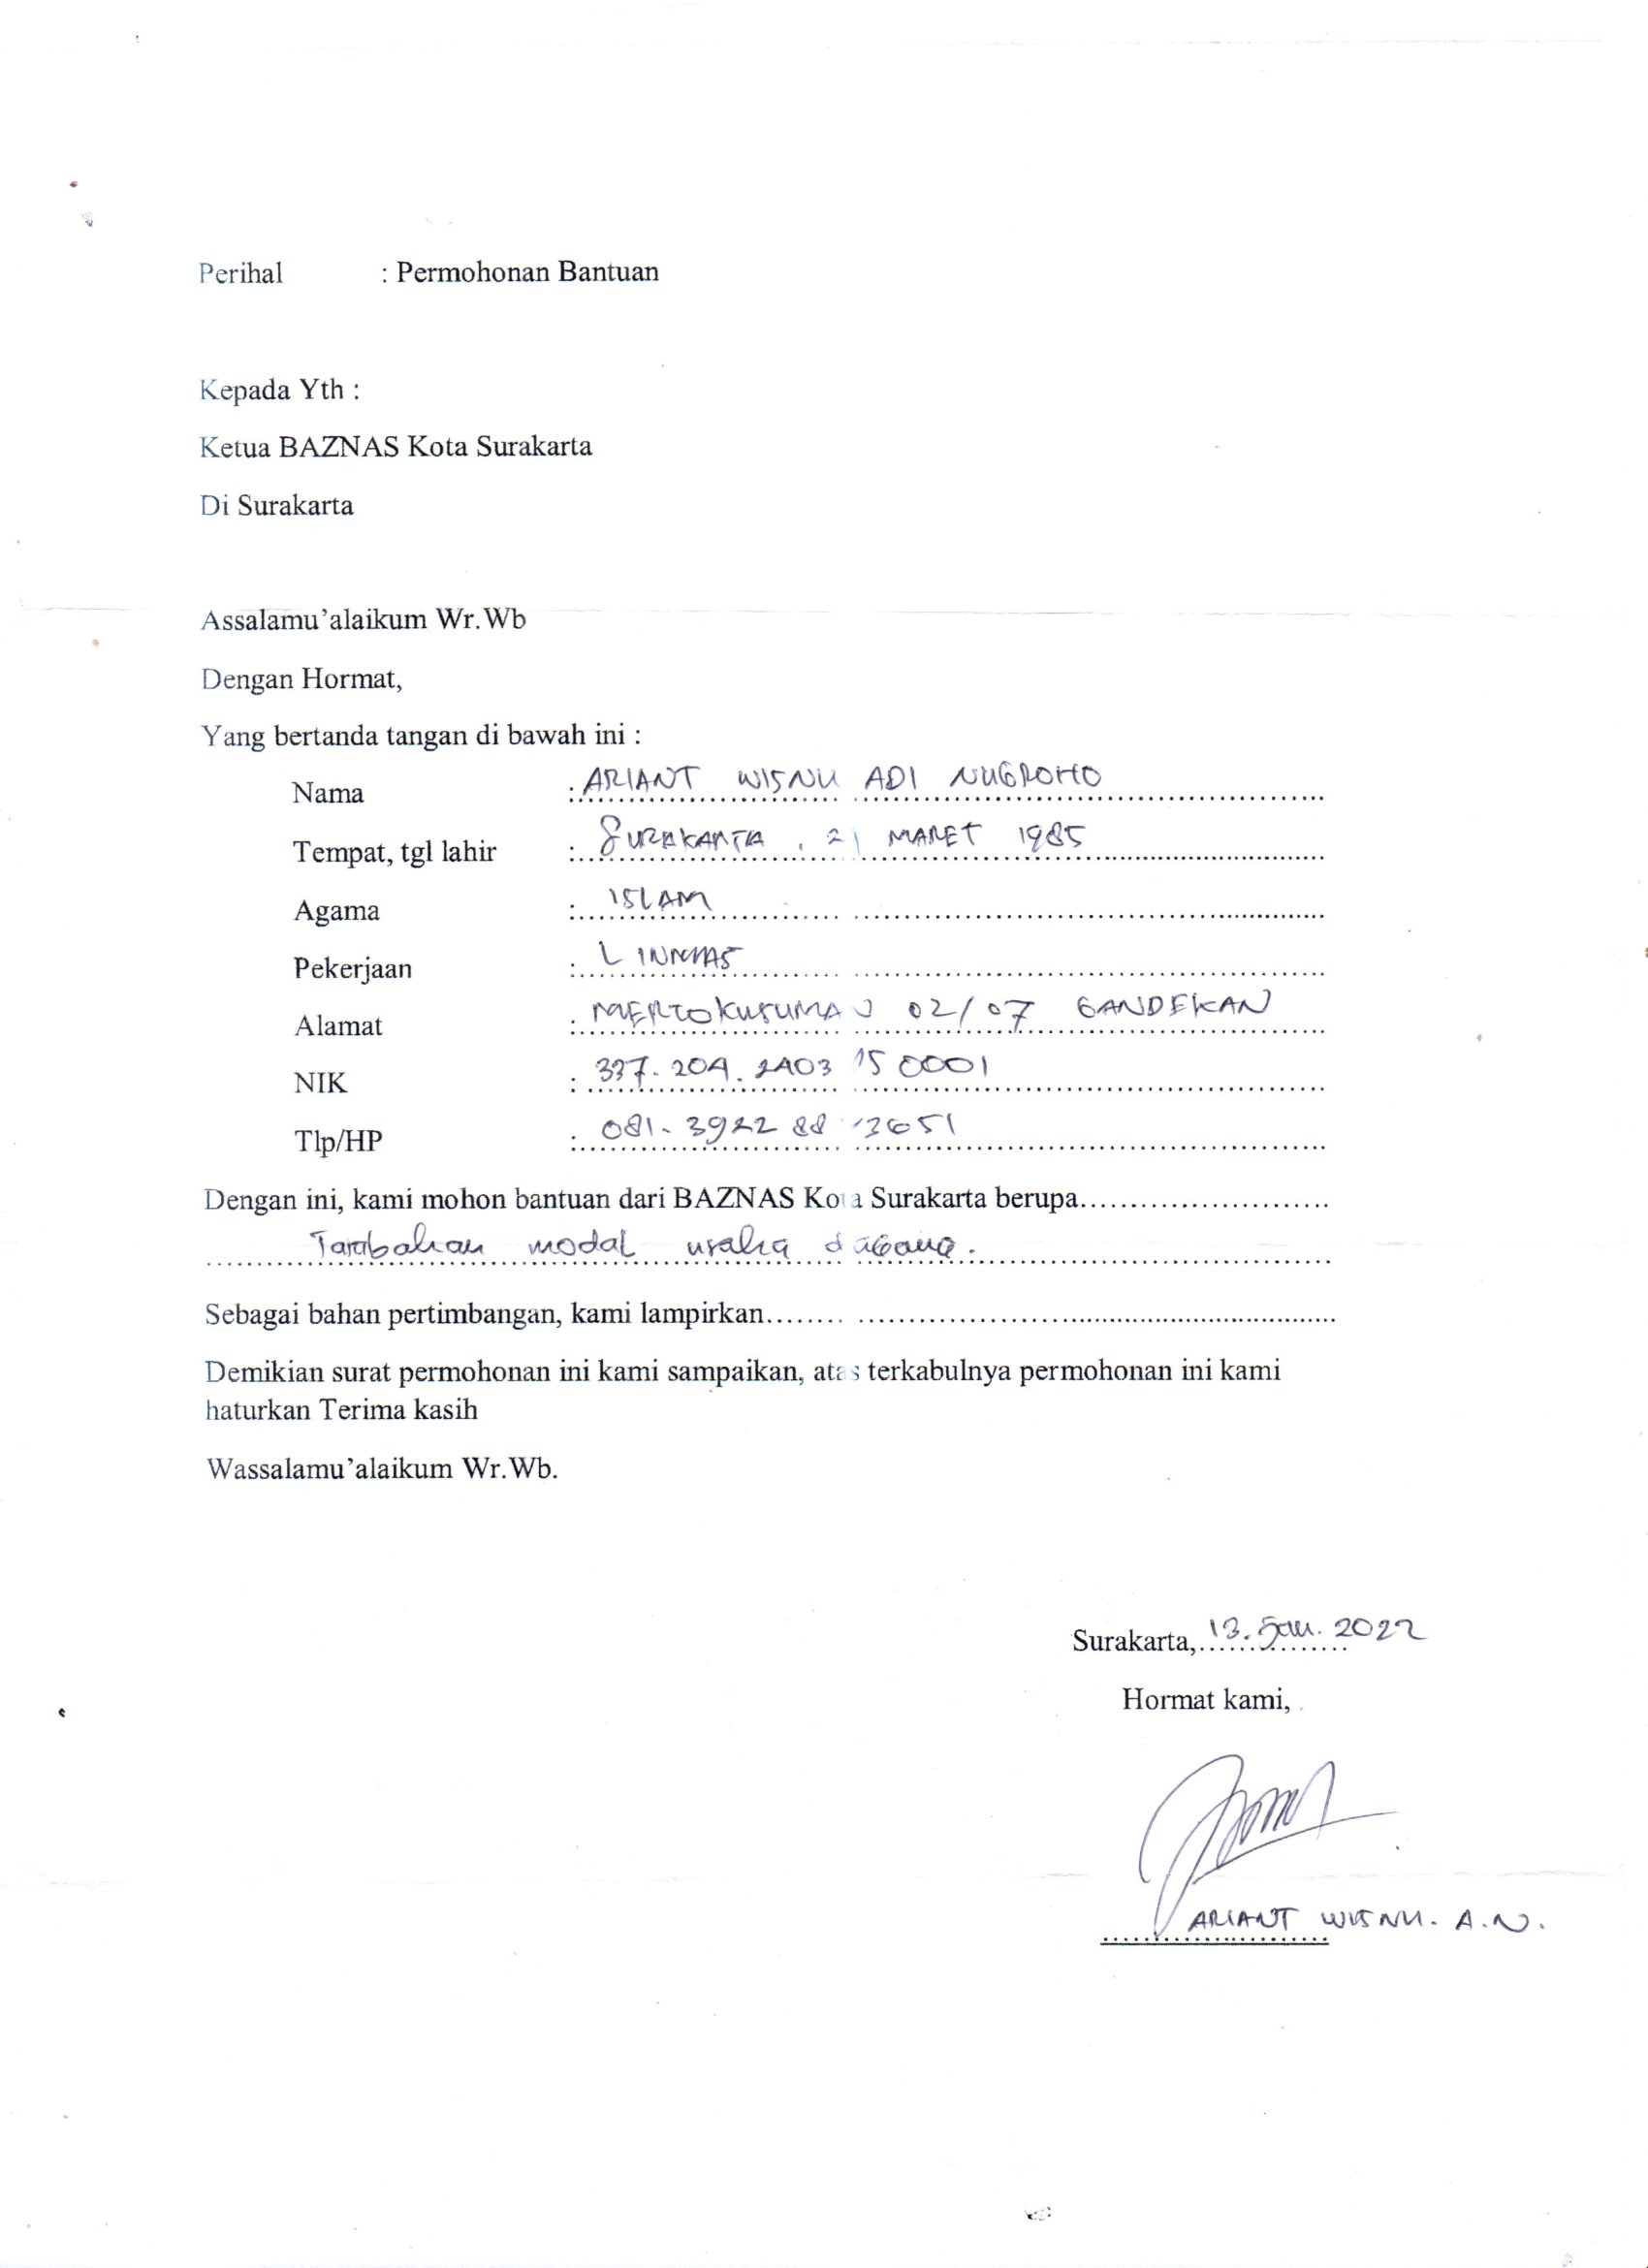 Perihal : Permohonan Bantuan
Kepada Yth :
Ketua BAZNAS Kota Surakarta
Di Surakarta
Assalamu'alaikum Wr.Wb
Dengan Hormat,
Yang bertanda tangan di bawah ini :
Nama : ARIANT WISNU ADI NUGROHO
Tempat, tgl lahir : SURAKARTA, 21 MARET 1985
Agama : ISLAM
Pekerjaan : LINMAS
Alamat : MERTOKUSUMAN 02/07 GANDEKAN
NIK : 337.204.2403 15 0001
Tlp/HP : 081-3922 88 3651
Dengan ini, kami mohon bantuan dari BAZNAS Kota Surakarta berupa..........................
Tambahan modal usaha dagang.
Sebagai bahan pertimbangan, kami lampirkan..........................
Demikian surat permohonan ini kami sampaikan, atas terkabulnya permohonan ini kami
haturkan Terima kasih
Wassalamu'alaikum Wr.Wb.
Surakarta, 13. Jan. 2022
Hormat kami,
ARIANT WISNU. A.N.